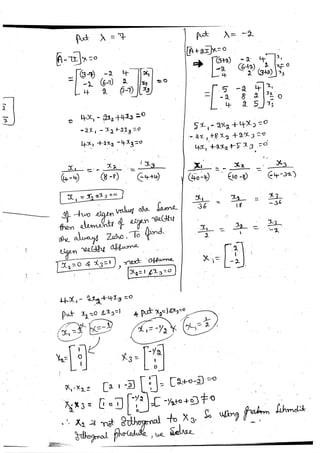 Put λ = 7
[A-7I]x=0
= [(3-7) -2 4
-2 (6-7) 2
4 2 (3-7)] [x₁
x₂
x₃] =0
= -4x₁ - 2x₂ + 4x₃ =0
-2x₁ - x₂ + 2x₃ =0
4x₁ + 2x₂ - 4x₃ =0
x₁/(-4+4) = x₂/(8-8) = x₃/(4-4)
x₁ = x₂ = x₃ = 0
If two eigen values are same
then elements of eigen vectors
are always Zero. To find
eigen vectors assume
x₂=0 & x₃=1, next assume
x₂=1 & x₃=0
-4x₁ - 2x₂ + 4x₃ =0
Put x₂=0 & x₃=1 & put x₂=1 & x₃=0
x₁=1
x₁ = -1/2
X₂ = [1
0
1] X₃ = [-1/2
1
0]
X₁.X₂ = [2 1 -2] [1
0
1] = [2+0-2] =0
X₂X₃ = [1 0 1] [-1/2
1
0] = [-1/2+0+0] ≠ 0
∴ X₂ is not orthogonal to X₃. So using
orthogonal procedure, we
Put λ = -2
[A+2I]x=0
⇒ [(3+2) -2 4
-2 (6+2) 2
4 2 (3+2)] [x₁
x₂
x₃] =0
= [5 -2 4
-2 8 2
4 2 5] [x₁
x₂
x₃] = 0
5x₁ - 2x₂ + 4x₃ =0
-2x₁ + 8x₂ + 2x₃ =0
4x₁ + 2x₂ + 5x₃ =0
x₁/(40-4) = -x₂/(-10-8) = x₃/(-4-32)
x₁/36 = x₂/18 = x₃/-36
x₁/2 = x₂/1 = x₃/-2
X₁ = [2
1
-2]